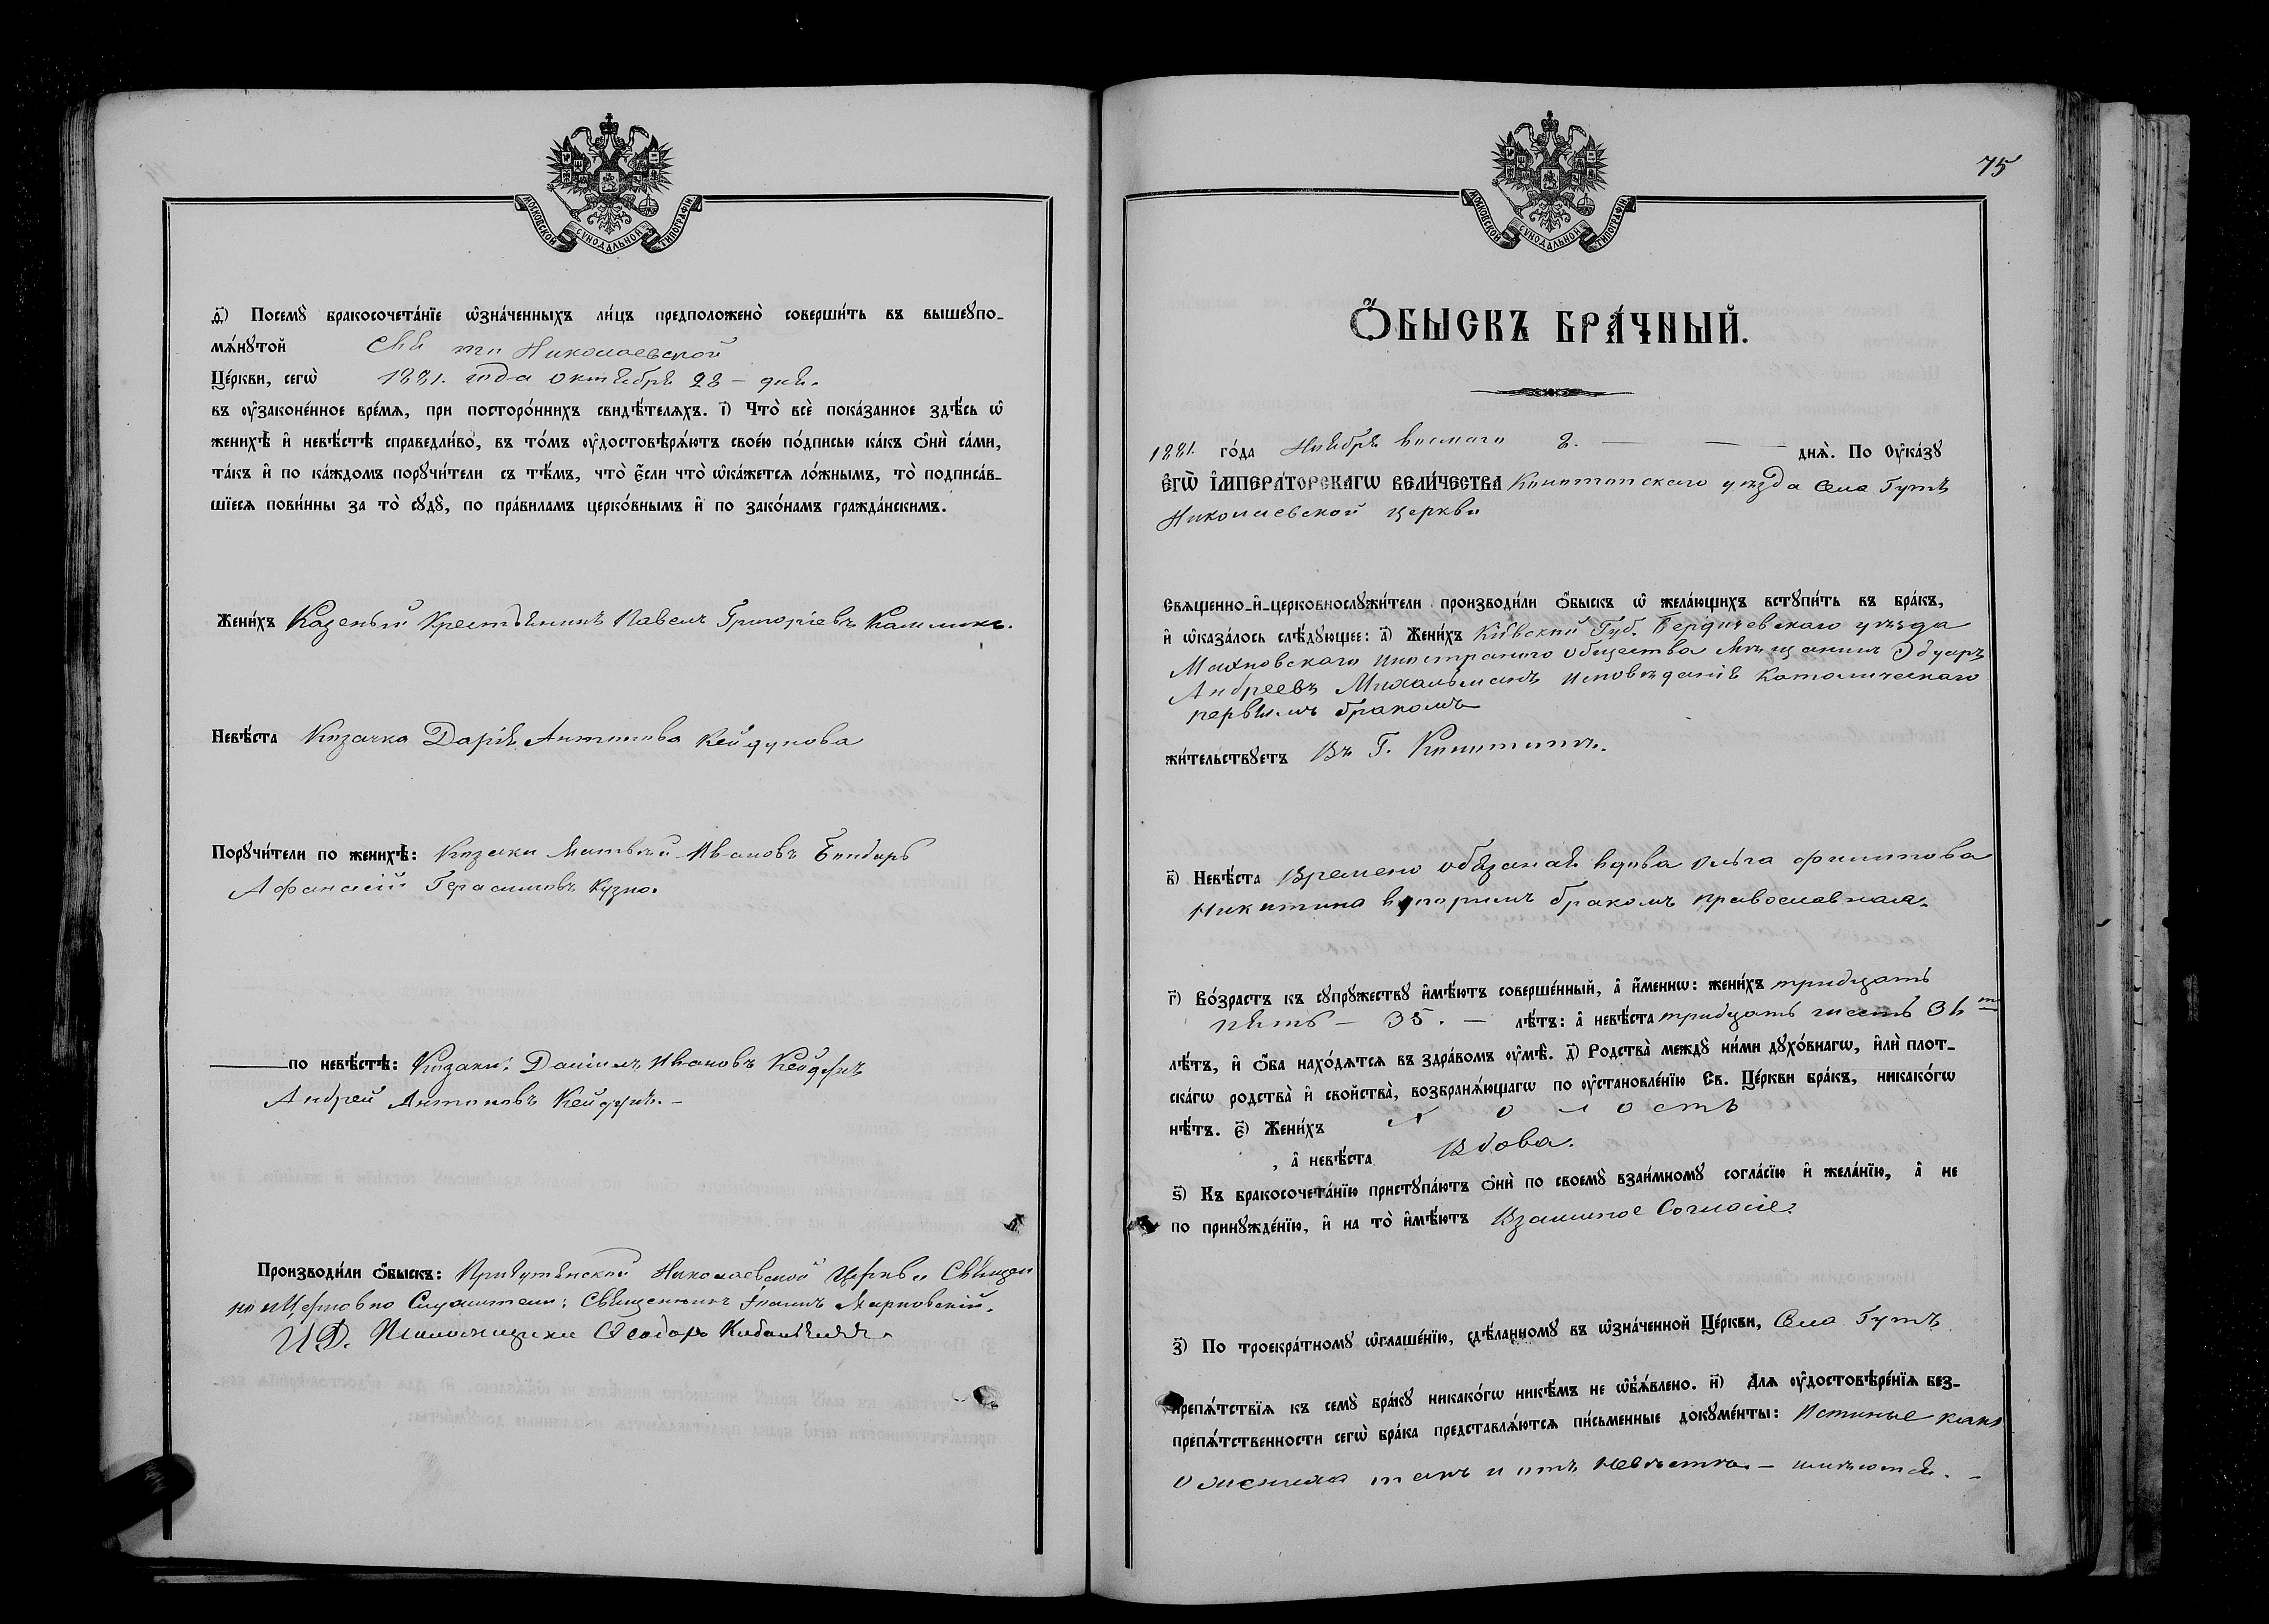 МОСКОВСКОЙ СУНОДАЛЬНОЙ ТИПОГРАФІИ
д҃) Посемꙋ̀ бракосочета́нїе ѡ҆зна́ченныхъ ли́цъ предположено̀ соверши́ть въ вышеꙋпо-
мѧ́нꙋтой Свя то Николаевской
Це́ркви, сегѡ̀ 1881. года октября 28 – дня.
въ ᲂу҆законе́нное вре́мѧ, при посторо́ннихъ свидѣ́телѧхъ. і҃) Что̀ всѐ пока́занное здѣ́сь ѡ҆
женихѣ̀ и҆ невѣ́стѣ справедли́во, въ то́мъ ᲂу҆достовѣрѧ́ютъ свое́ю по́дписью ка́къ ѻ҆нѝ са́ми,
та́къ и҆ по ка́ждомъ порꙋчи́тели съ тѣ́мъ, что̀ є҆́сли что̀ ѡ҆ка́жетсѧ ло́жнымъ, то̀ подписа́в-
шїесѧ пови́нны за то̀ сꙋдꙋ̀, по пра́виламъ церко́внымъ и҆ по зако́намъ гражда́нскимъ.
Жени́хъ Казеный Крестьянинъ Павелъ Григоріевъ
Невѣ́ста Козачка Дарія Антонова Кейдунова
Порꙋчи́тели по женихѣ̀: Козаки Матвей Ивановъ Бондарь
Афанасій Герасимовъ Кузко.
по невѣ́стѣ: Козаки: Даніилъ Ивановъ Кейдунъ
Андрей Антоновъ Кейдунъ. –
Производи́ли ѻ҆́быскъ: Николаевской Церкви Священ
но и Церковно Служители: Священникъ Іоаннъ Марковскій.
И Д. Псаломщика Ѳеодоръ
75
МОСКОВСКОЙ СУНОДАЛЬНОЙ ТИПОГРАФІИ
Ѻ҆́БЫСКЪ БРА́ЧНЫЙ.
1881. го́да Ноября восмаго 8. — — днѧ̀. По Оу҆ка́зꙋ
Е҆ГѠ̀ І҆МПЕРА́ТОРСКАГѠ ВЕЛИ́ЧЕСТВА Конотопскаго уезда Села Гутъ
Николаевской церкви
Свѧщенно-и҆-церковнослꙋжи́тели производи́ли ѻ҆́быскъ ѡ҆ жела́ющихъ встꙋпи́ть въ бра́къ,
и҆ ѡ҆каза́лось слѣ́дꙋющее: а҃) Жени́хъ Кіевской Губ. Бердичевскаго уезда
Махновскаго иностранаго общества Мещанинъ Эдуаръ
Андреевъ Михальманъ исповеданія Католическаго
первымъ бракомъ
жи́тельствꙋетъ Въ Г. Конотопе.
в҃) Невѣ́ста Времено обязаная вдова Ольга Филипова
Никитина вторымъ бракомъ православная.
г҃) Во́зрастъ къ сꙋпрꙋ́жествꙋ и҆мѣ́ютъ соверше́нный, а҆ и҆́меннѡ: жени́хъ тридцать
пять – 35. – лѣ́тъ: а҆ невѣ́ста тридцать шесть 36
лѣ́тъ, и҆ ѻ҆́ба нахо́дѧтсѧ въ здра́вомъ ᲂу҆мѣ̀. д҃) Родства̀ междꙋ̀ ни́ми дꙋхо́внагѡ, и҆лѝ плот-
ска́гѡ родства̀ и҆ свойства̀, возбранѧ́ющагѡ по ᲂу҆становле́нїю Св. Це́ркви бра́къ, никако́гѡ
нѣ́тъ. є҃) Жени́хъ Холостъ
, а҆ невѣ́ста Вдова.
ѕ҃) Къ бракосочета́нїю пристꙋпа́ютъ ѻ҆нѝ по своемꙋ̀ взаи́мномꙋ согла́сїю и҆ жела́нїю, а҆ не
по принꙋжде́нїю, и҆ на то̀ и҆мѣ́ютъ Взаимное Согласіе.
з҃) По троекра́тномꙋ ѡ҆глаше́нїю, сдѣ́ланномꙋ въ ѡ҆зна́ченной Це́ркви, Села Гутъ
препѧ́тствїѧ къ семꙋ̀ бра́кꙋ никако́гѡ никѣ́мъ не ѡ҆б̾ѧ́влено. и҃) Длѧ ᲂу҆достовѣре́нїѧ без-
препѧ́тственности сегѡ̀ бра́ка представлѧ́ютсѧ пи́сьменные докꙋме́нты: Истиные какъ
о жениха такъ и отъ невесты – имеются. –